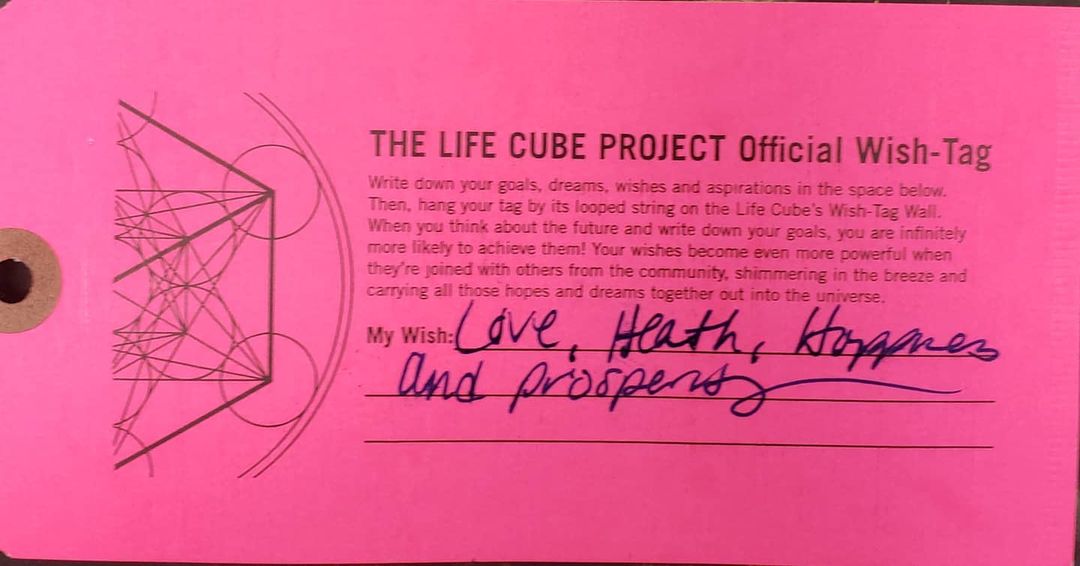 THE LIFE CUBE PROJECT Official Wish-Tag
Write down your goals, dreams, wishes and aspirations in the space below.
Then, hang your tag by its looped string on the Life Cube's Wish-Tag Wall.
When you think about the future and write down your goals, you are infinitely
more likely to achieve them! Your wishes become even more powerful when
they're joined with others from the community, shimmering in the breeze and
carrying all those hopes and dreams together out into the universe.
My Wish: Love, Heath, Happiness
and prosperity